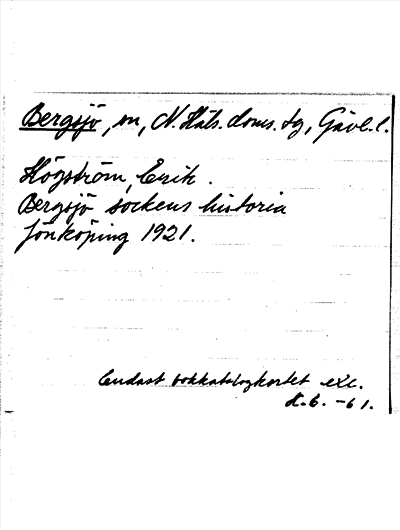 Bergsjö, sn, N. Häls. doms. tg, Gävl. l.
Högström, Erik.
Bergsjö sockens historia
Jönköping 1921.
Endast bokkatalogkortet exc.
K. B. -61.